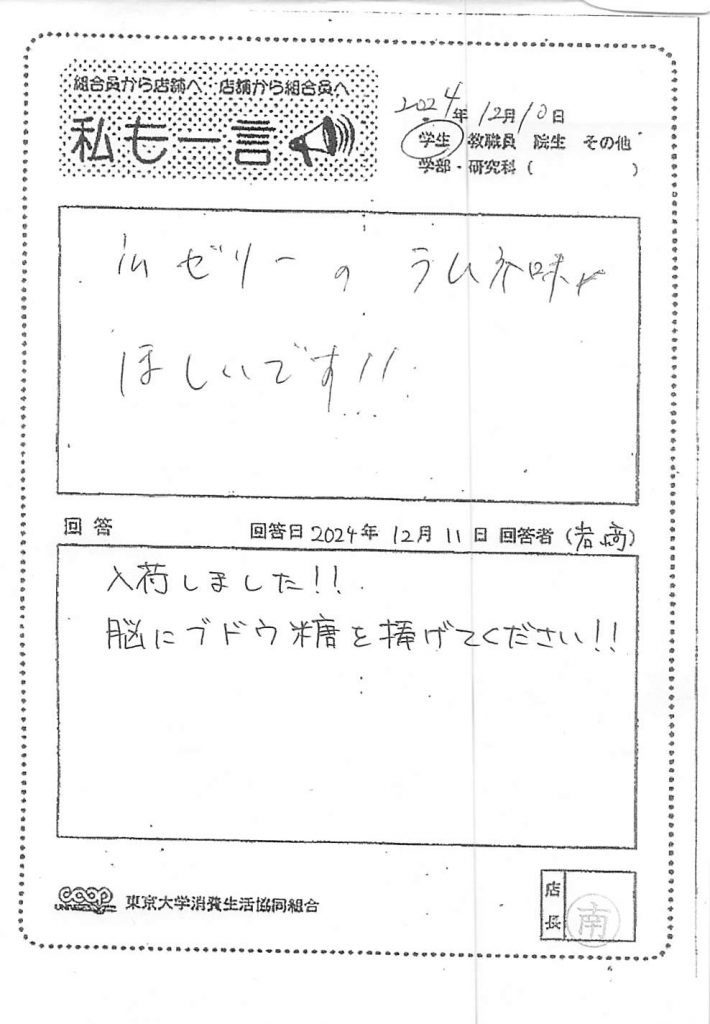 組合員から店舗へ 店舗から組合員へ
私も一言
2024年 12月10日
学生 教職員 院生 その他
学部・研究科( )
inゼリーの ラムネ味が
ほしいです!!
回答 回答日 2024年 12月 11日 回答者(岩高)
入荷しました!!
脳にブドウ糖を捧げてください!!
coop
東京大学消費生活協同組合
店長
南